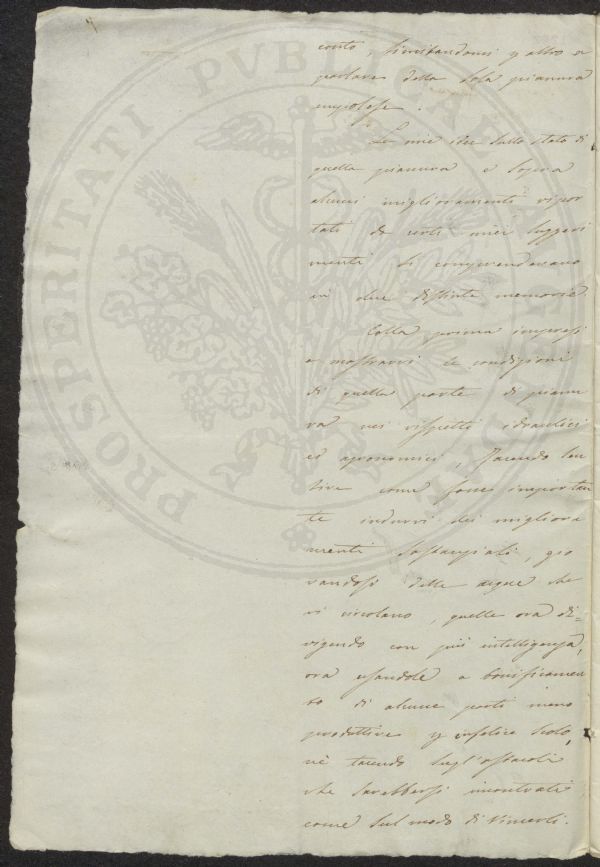 conto, limitandomi p altro a
parlare della sola pianura
empolese.
Le mie idee sullo stato di
quella pianura e sopra
alcuni miglioramenti ripor
tati da certi miei suggeri
menti si comprendevano
in due distinte memorie.
Colla prima impresi
a mostrarvi le condizioni
di quella parte di pianu
ra nei rispetti idraulici
ed agronomici, facendo sen
tire come fosse importan
te indurvi dei migliora
menti sostanziali, gio
vandosi delle acque che
vi circolano, quelle ora di=
rigendo con più intelligenza,
ora usandole a bonificamen
to di alcune parti meno
produttive p infelice scolo,
nè tacendo sugl'ostacoli
che sarebbersi incontrati
come sul modo di vincerli.
PROSPERITATI PUBLICAE AUGENDAE